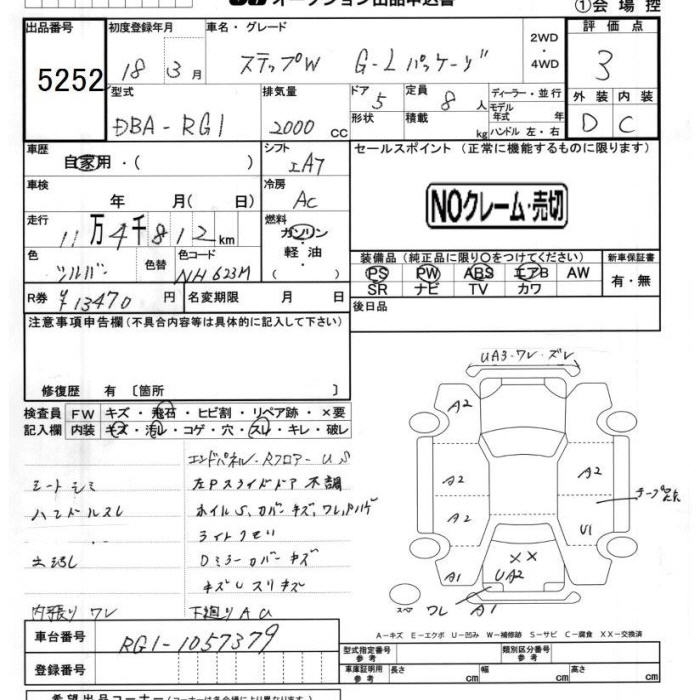 オークション出品申込書
①会場控
出品番号
5252
初度登録年月
18 3月
車名・グレード
ステップW G-Lパッケージ
2WD
・
4WD
評価点
3
型式
DBA-RG1
排気量
2000 cc
ドア
5
形状
定員
8人
積載
kg
ディーラー・並行
モデル
年式 年
ハンドル 左・右
外装
D
内装
C
車歴
自家用・( )
シフト
IA7
セールスポイント (正常に機能するものに限ります)
NOクレーム・売切
車検
年 月( 日)
冷房
AC
走行
11万4千812km
燃料
ガソリン
・
軽油
( )
色
シルバー
色替
色コード
NH623M
装備品 (純正品に限り〇をつけてください)
PS PW ABS エアB AW
SR ナビ TV カワ
新車保証書
有・無
R券
¥13470円
名変期限 月 日
後日品
注意事項申告欄 (不具合内容等は具体的に記入して下さい)
修復歴 有 〔箇所 〕
検査員
記入欄
FW キズ・飛石・ヒビ割・リペア跡・×要
内装 キズ・汚レ・コゲ・穴・スレ・キレ・破レ
エンドパネル・Rフロアー US
シートシミ
左Pスライドドア不調
ハンドルスレ
ホイルS,カバーキズ,ワレ,
ライトクモリ
Dミラーカバーキズ
キズUスリキズ
内張りワレ
下廻りAU
UA3・ワレ・ズレ
A2
A2
A2
A2
A2
U1
××
UA2
A1
A1
ワレ
スペア
A-キズ E-エクボ U-凹み W-補修跡 S-サビ C-腐食 XX-交換済
車台番号
RG1-1057379
登録番号
型式指定番号
参考
類別区分番号
参考
車庫証明用
参考
長さ cm
幅 cm
高さ cm
希望出品コーナー